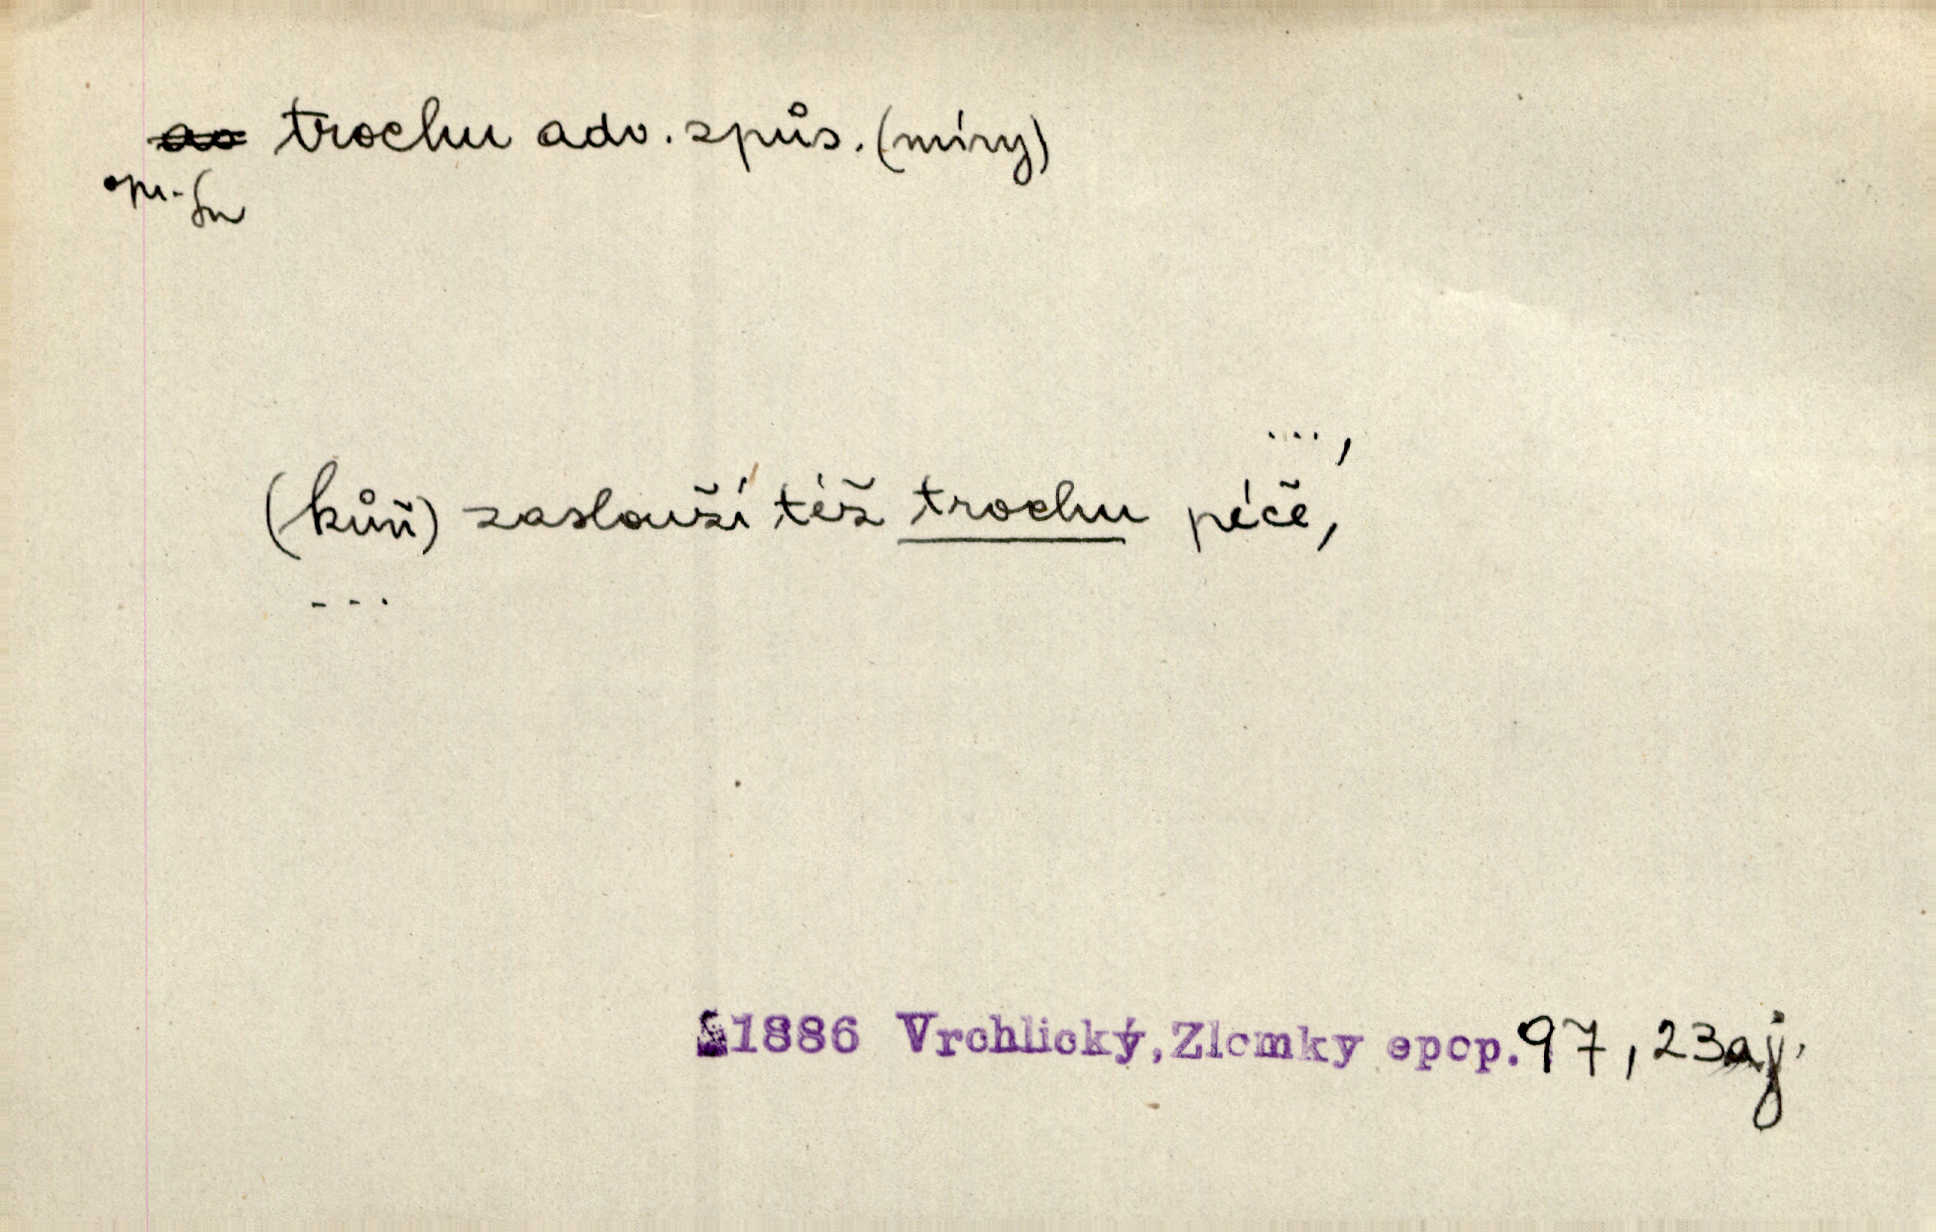 trochu adv. způs. (míry)
..., 
(kůň) zaslouží též trochu péče,
---
1886 Vrchlický, Zlomky epop. 97, 23 aj.